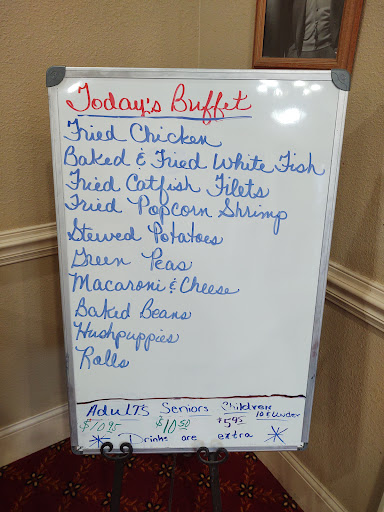 Today's Buffet
Fried Chicken
Baked & Fried White Fish
Fried Catfish Filets
Fried Popcorn Shrimp
Stewed Potatoes
Green Peas
Macaroni & Cheese
Baked Beans
Hushpuppies
Rolls
Adults Seniors Children 10 & Under
$10.95 $10.50 $5.95
* Drinks are extra *